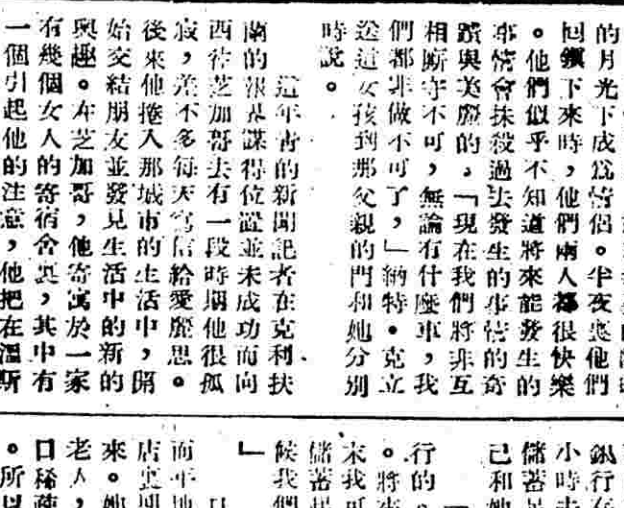 的月光下成爲情侶。半夜裏他們
回鎭下來時,他們兩人都很快樂
。他們似乎不知道將來能發生的
事情會抹殺過去發生的事情的奇
蹟與美麗的。「現在我們將非互
相廝守不可,無論有什麼事,我
們都非做不可了,」納特•克立
送這女孩到那父親的門和她分別
時說。
這年青的新聞記者在克利扶
蘭的報界謀得位置並未成功而向
西往芝加哥去有一段時期他很孤
寂,差不多每天寫信給愛麗思。
後來他捲入那城市的生活中,開
始交結朋友並發見生活中的新的
興趣。在芝加哥,他寄寓於一家
有幾個女人的寄宿舍裏,其中有
一個引起他的注意,他把在溫斯
銀行
小時
儲蓄
己和她
行的
。將來
末我可
儲蓄
候我們
」
而平地
店裏
來。她
老人,
口稀
。所以